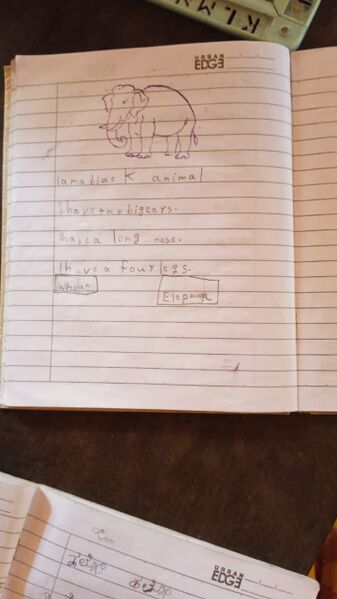 K L M
URBAN
EDGE
I am a blac K animal
I have two big ears.
I have a long nose.
I have a four legs.
Who am
URBAN
EDGE